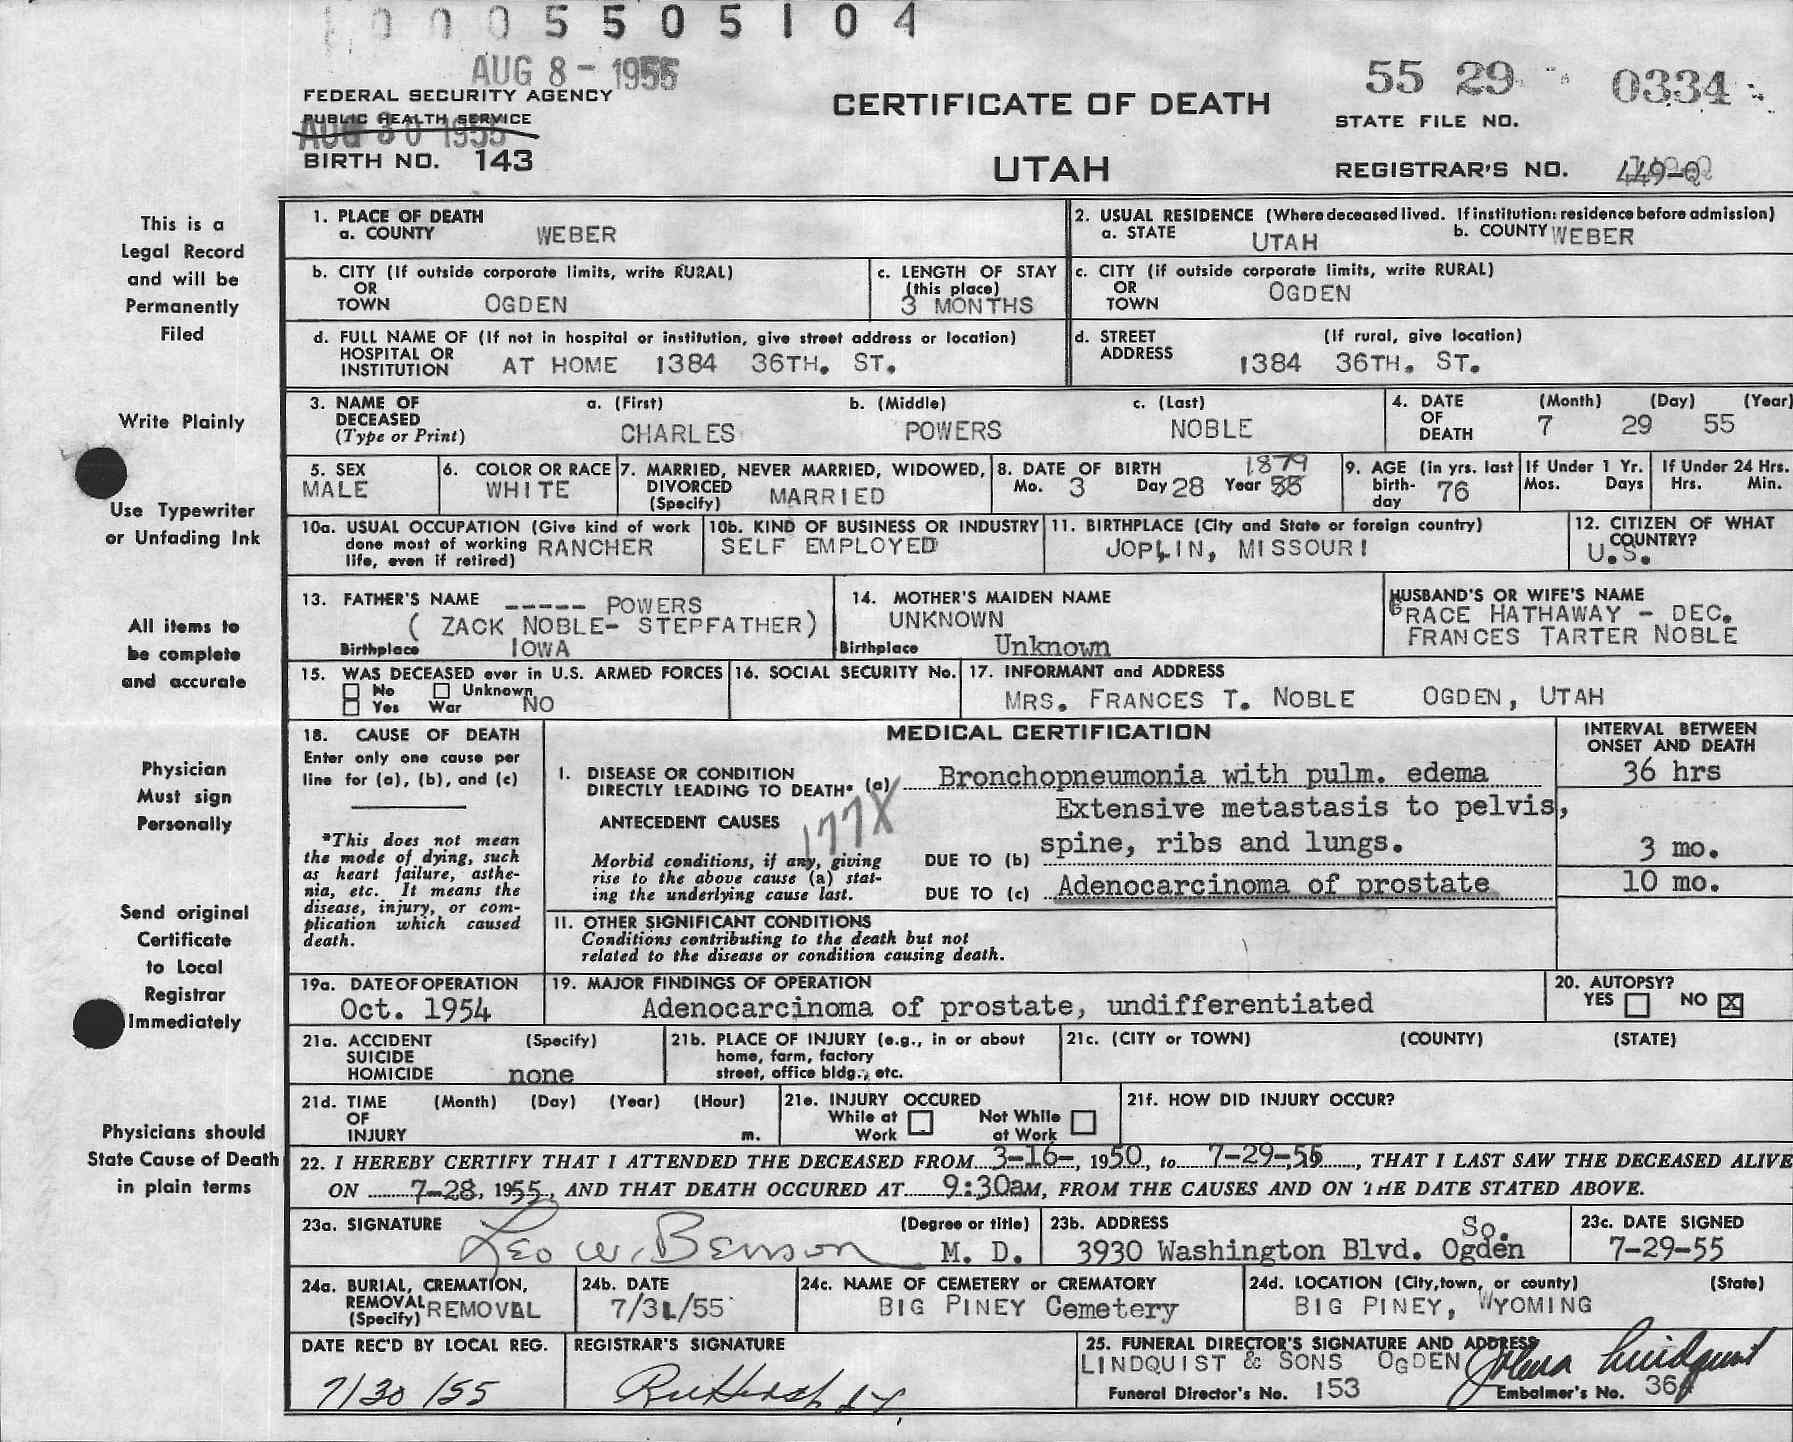 0005505104
AUG 8 - 1955
FEDERAL SECURITY AGENCY
PUBLIC HEALTH SERVICE
AUG 30 1955
BIRTH NO. 143
CERTIFICATE OF DEATH
UTAH
55 29 0334
STATE FILE NO.
REGISTRAR'S NO.
This is a
Legal Record
and will be
Permanently
Filed
Write Plainly
Use Typewriter
or Unfading Ink
All items to
be complete
and accurate
Physician
Must sign
Personally
Send original
Certificate
to Local
Registrar
Immediately
Physicians should
State Cause of Death
in plain terms
1. PLACE OF DEATH
a. COUNTY WEBER
2. USUAL RESIDENCE (Where deceased lived. If institution: residence before admission)
a. STATE UTAH b. COUNTY WEBER
b. CITY (If outside corporate limits, write RURAL)
OR
TOWN OGDEN
c. LENGTH OF STAY
(this place)
3 MONTHS
c. CITY (if outside corporate limits, write RURAL)
OR
TOWN OGDEN
d. FULL NAME OF (If not in hospital or institution, give street address or location)
HOSPITAL OR
INSTITUTION AT HOME 1384 36TH. ST.
d. STREET (If rural, give location)
ADDRESS 1384 36TH. ST.
3. NAME OF a. (First) b. (Middle) c. (Last)
DECEASED
(Type or Print) CHARLES POWERS NOBLE
4. DATE (Month) (Day) (Year)
OF
DEATH 7 29 55
5. SEX
MALE
6. COLOR OR RACE
WHITE
7. MARRIED, NEVER MARRIED, WIDOWED,
DIVORCED
(Specify) MARRIED
8. DATE OF BIRTH 1879
Mo. 3 Day 28 Year 55
9. AGE (in yrs. last
birth-
day 76
If Under 1 Yr.
Mos. Days
If Under 24 Hrs.
Hrs. Min.
10a. USUAL OCCUPATION (Give kind of work
done most of working RANCHER
life, even if retired)
10b. KIND OF BUSINESS OR INDUSTRY
SELF EMPLOYED
11. BIRTHPLACE (City and State or foreign country)
JOPLIN, MISSOURI
12. CITIZEN OF WHAT
COUNTRY?
U.S.
13. FATHER'S NAME ----- POWERS
( ZACK NOBLE- STEPFATHER)
Birthplace IOWA
14. MOTHER'S MAIDEN NAME
UNKNOWN
Birthplace Unknown
HUSBAND'S OR WIFE'S NAME
GRACE HATHAWAY - DEC.
FRANCES TARTER NOBLE
15. WAS DECEASED ever in U.S. ARMED FORCES
No Unknown
Yes War NO
16. SOCIAL SECURITY No.
17. INFORMANT and ADDRESS
MRS. FRANCES T. NOBLE OGDEN, UTAH
18. CAUSE OF DEATH
Enter only one cause per
line for (a), (b), and (c)
*This does not mean
the mode of dying, such
as heart failure, asthe-
nia, etc. It means the
disease, injury, or com-
plication which caused
death.
MEDICAL CERTIFICATION
INTERVAL BETWEEN
ONSET AND DEATH
I. DISEASE OR CONDITION
DIRECTLY LEADING TO DEATH* (a) Bronchopneumonia with pulm. edema 36 hrs
177X
ANTECEDENT CAUSES
Extensive metastasis to pelvis,
Morbid conditions, if any, giving
rise to the above cause (a) stat-
ing the underlying cause last.
DUE TO (b) spine, ribs and lungs. 3 mo.
DUE TO (c) Adenocarcinoma of prostate 10 mo.
II. OTHER SIGNIFICANT CONDITIONS
Conditions contributing to the death but not
related to the disease or condition causing death.
19a. DATE OF OPERATION
Oct. 1954
19. MAJOR FINDINGS OF OPERATION
Adenocarcinoma of prostate, undifferentiated
20. AUTOPSY?
YES NO X
21a. ACCIDENT (Specify)
SUICIDE
HOMICIDE none
21b. PLACE OF INJURY (e.g., in or about
home, farm, factory
street, office bldg., etc.
21c. (CITY or TOWN) (COUNTY) (STATE)
21d. TIME (Month) (Day) (Year) (Hour)
OF
INJURY m.
21e. INJURY OCCURED
While at Not While
Work at Work
21f. HOW DID INJURY OCCUR?
22. I HEREBY CERTIFY THAT I ATTENDED THE DECEASED FROM 3-16-, 1950, to 7-29-55, THAT I LAST SAW THE DECEASED ALIVE
ON 7-28, 1955, AND THAT DEATH OCCURED AT 9:30am, FROM THE CAUSES AND ON THE DATE STATED ABOVE.
23a. SIGNATURE (Degree or title)
Leo W. Benson M. D.
23b. ADDRESS So.
3930 Washington Blvd. Ogden
23c. DATE SIGNED
7-29-55
24a. BURIAL, CREMATION,
REMOVAL
(Specify) REMOVAL
24b. DATE
7/31/55
24c. NAME OF CEMETERY or CREMATORY
BIG PINEY Cemetery
24d. LOCATION (City, town, or county) (State)
BIG PINEY, WYOMING
DATE REC'D BY LOCAL REG.
7/30/55
REGISTRAR'S SIGNATURE
25. FUNERAL DIRECTOR'S SIGNATURE AND ADDRESS
LINDQUIST & SONS OGDEN
Funeral Director's No. 153
Embalmer's No.